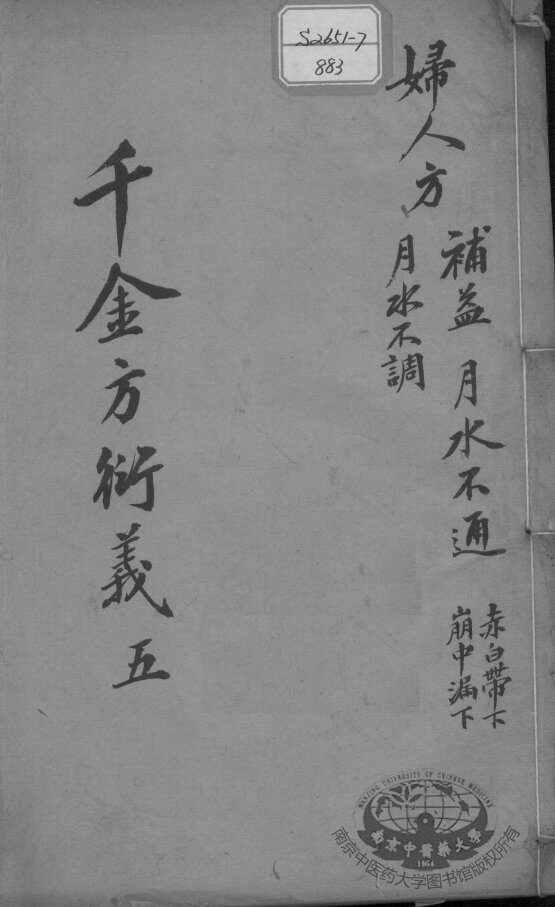 S2651-7
883
婦人方
補益 月水不通
赤白帶下
崩中漏下
月水不調
千金方衍義 五
NANJING UNIVERSITY OF CHINESE MEDICINE
南京中醫藥大學
1954
南京中医药大学图书馆版权所有